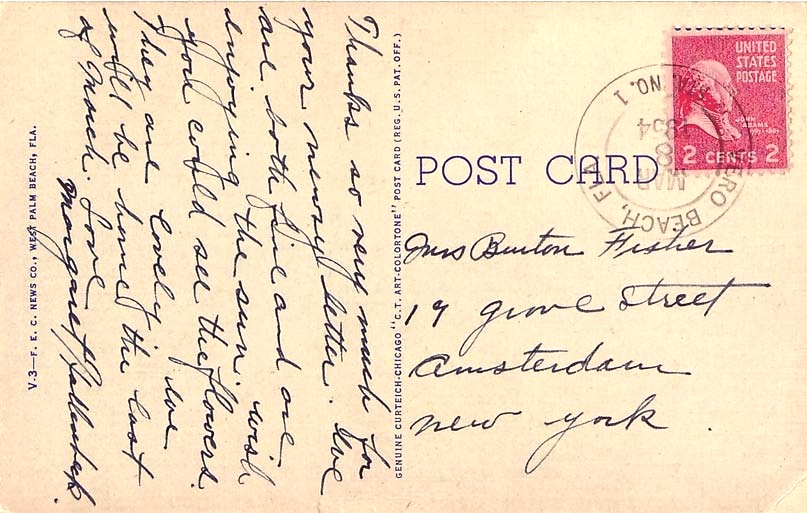 Thanks so very much for
your newsy letter. We
are both fine and are
enjoying the sun. wish
you could see the flowers.
They are lovely. we
will be home the last
of March. Love
Margaret
V.3—F. E. C. NEWS CO., WEST PALM BEACH, FLA.
GENUINE CURTEICH-CHICAGO "C.T. ART-COLORTONE" POST CARD (REG. U.S. PAT. OFF.)
POST CARD
UNITED
STATES
POSTAGE
JOHN
ADAMS
2 CENTS 2
VERO BEACH, FLA.
NO. 1
MAR
8
1954
Mrs Burton Fisher
19 Grove Street
Amsterdam
New York.